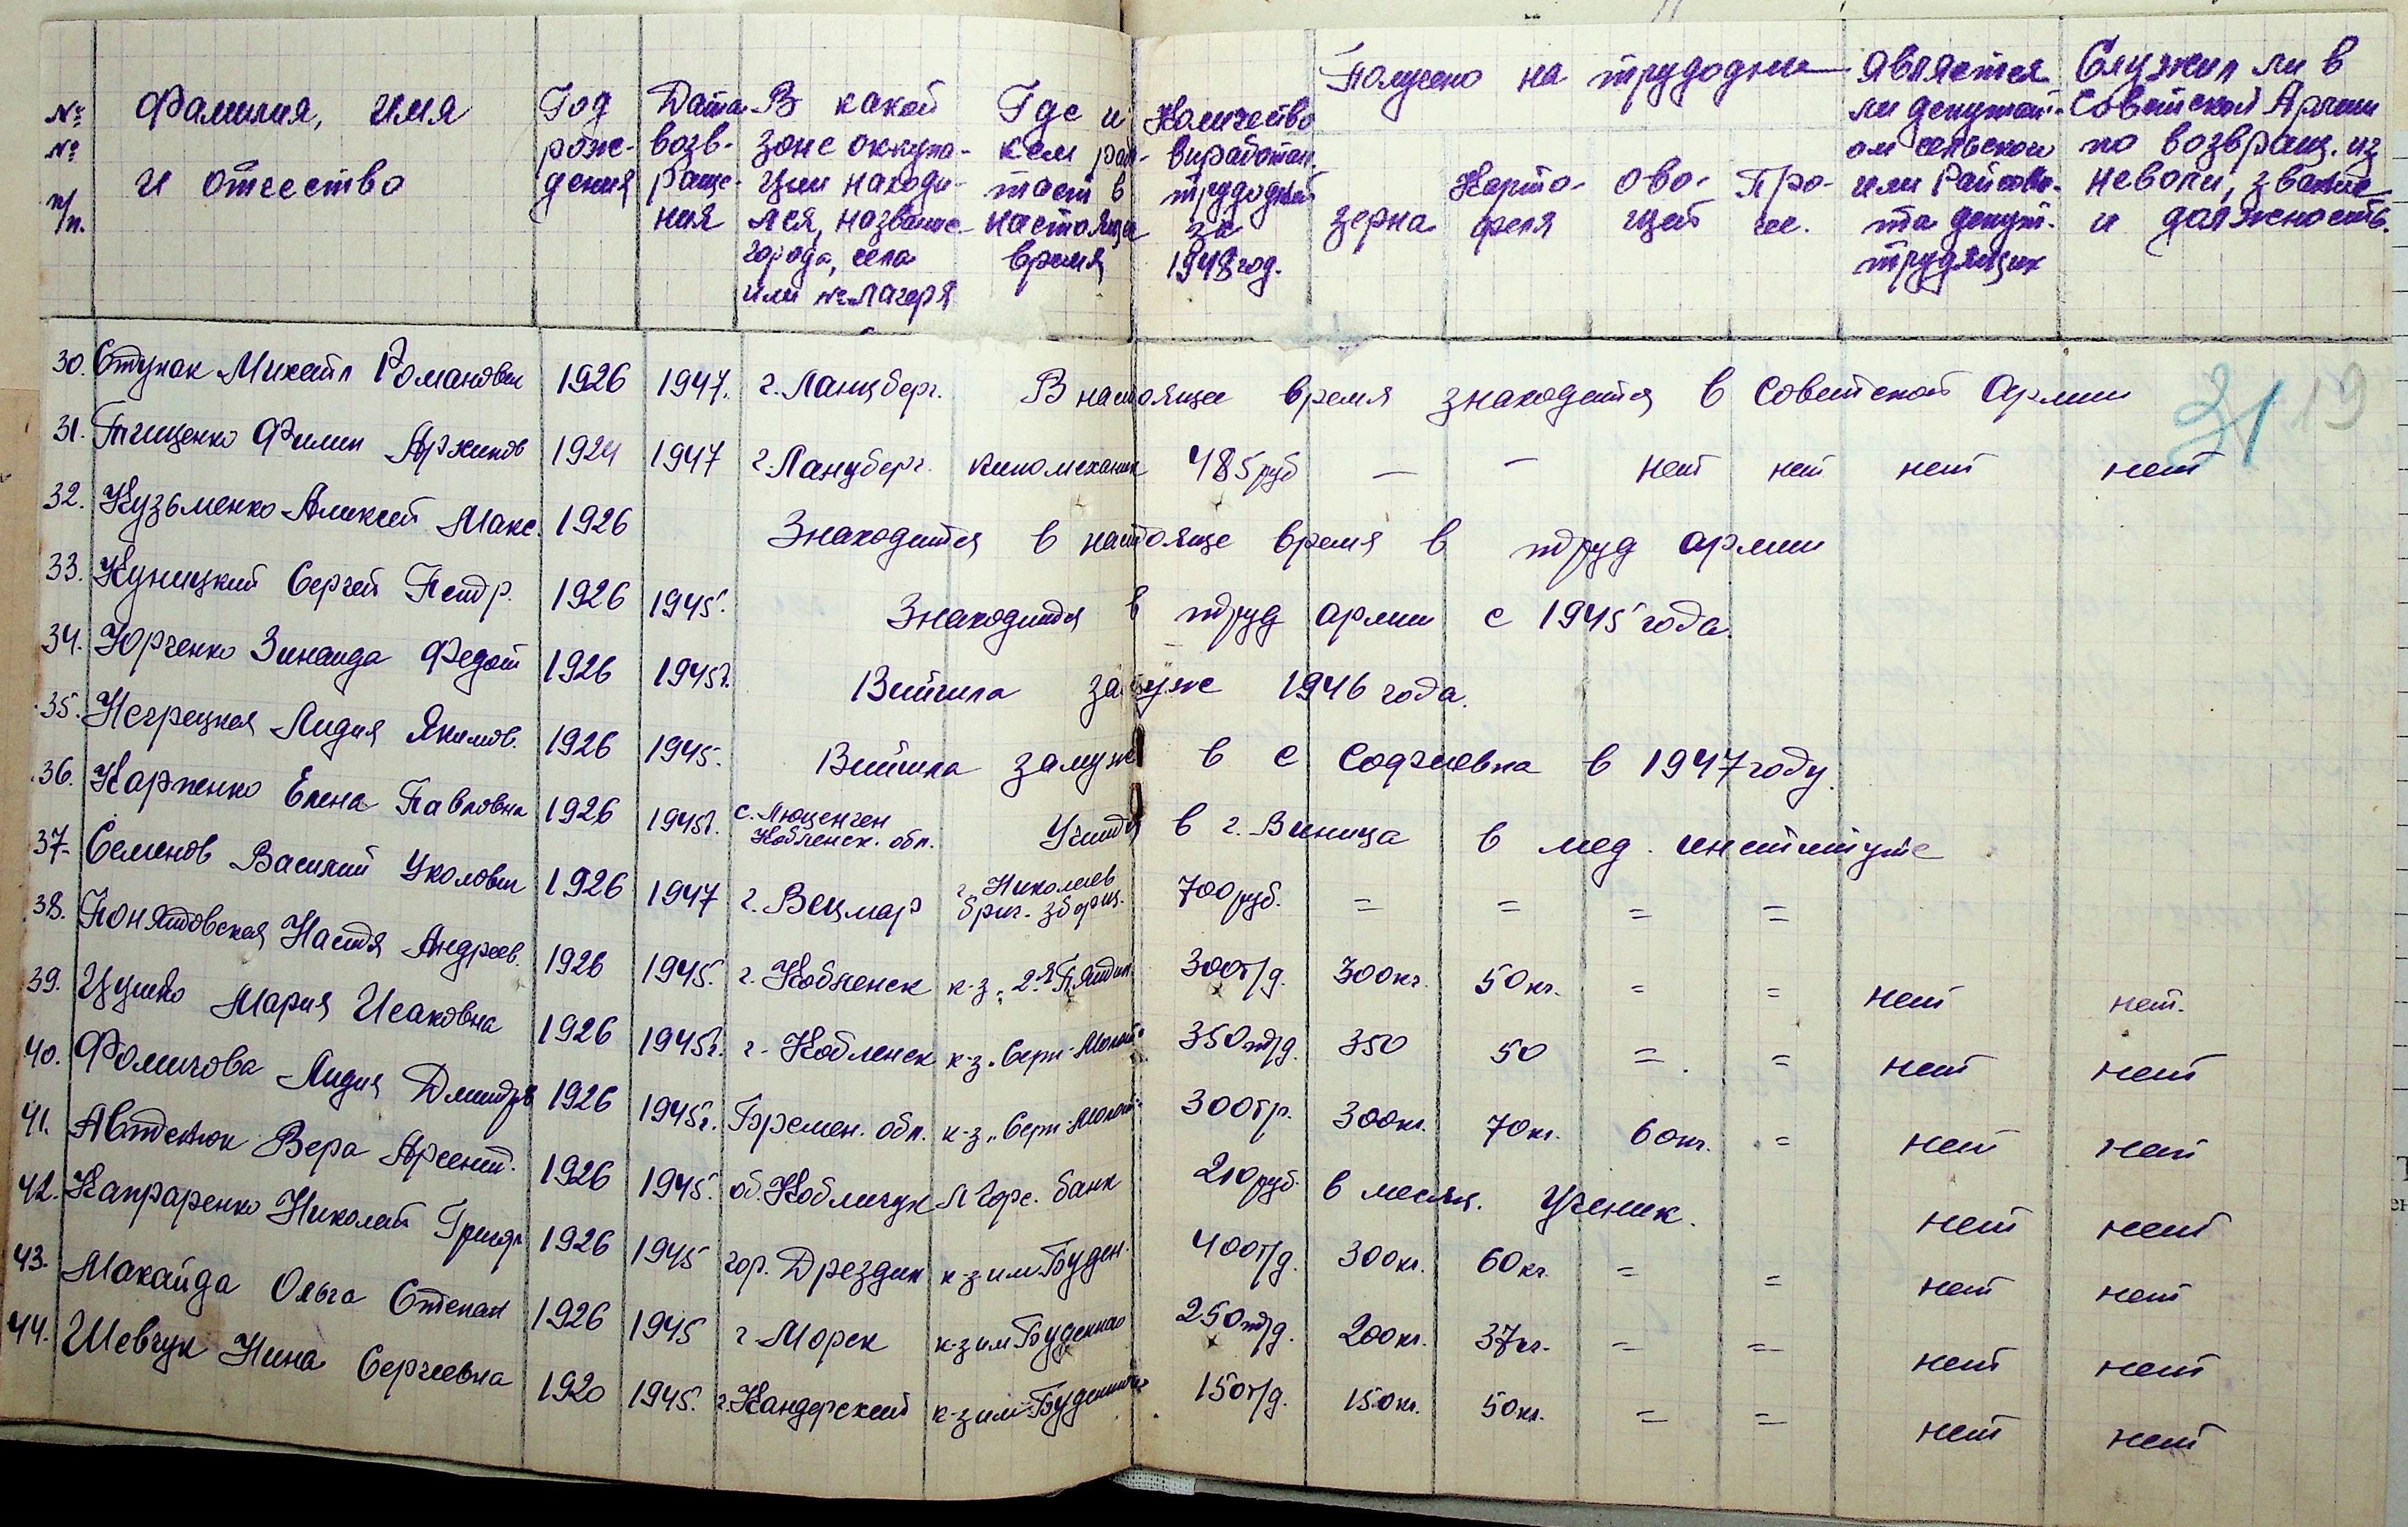 № № п/п. Фамилия, имя и отчество Год рождения Дата возвращения В какой зоне оккупации находился, название города, села или № лагеря Где и кем работает в настоящее время Количество выработан. трудодней за 1948 год. Получено на трудодни зерна картофеля овощей прочее. Является ли депутатом сельского или Райсовета депут. трудящих Служил ли в Советской Армии по возвращ. из неволи, звание и должность.
31 19
30. Ступак Михаил Романович 1926 1947. г. Ланцберг. В настоящее время знаходится в Советской Армии
31. Тищенко Филип 1924 1947 г. Ланцберг. киномеханик 485 руб — — нет нет нет нет
32. Кузьменко Алексей Макс. 1926 Знаходится в настояще время в труд армии
33. Куницкий Сергей Петр. 1926 1945. Знаходится в труд армии с 1945 года.
34. Юрченко Зинаида Федот 1926 1945г. Вийшла замуже 1946 года.
35. Негрецкая Лидия Якимов. 1926 1945. Вийшла замуж в с Софиевка в 1947 году.
36. Карпенко Елена Павловна 1926 1945г. с. Люценген Кобленск. обл. Учится в г. Виница в мед. институте
37. Семенов Василий 1926 1947 г. Вецмар г. Николаев 700 руб. = = = =
38. Понятовская Настя Андреев. 1926 1945. г. Кобленск к-з „2-я Пятил. 300 т/д. 300 кг. 50 кг. = = нет нет.
39. Цушко Мария Исаковна 1926 1945г. г. Кобленск к-з „Серп-Молот" 350 т/д. 350 50 = = нет нет
40. Фомичова Лидия Дмитрв 1926 1945г. Бремен. обл. к-з „Серп-Молот" 300 тр. 300 кг. 70 кг. 60 кг. = нет нет
41. Авдеюк Вера Арсент. 1926 1945. об. Кобличук банк 210 руб. в месяц. Ученик. нет нет
42. Капраренко Николай Григор 1926 1945 гор. Дрездин к-з им Буден. 400 т/д. 300 кг. 60 кг. = = нет нет
43. Макайда Ольга Степан 1926 1945 г. Морск к-з им Буденного 250 т/д. 200 кг. 37 кг. = = нет нет
44. Шевчук Нина Сергеевна 1920 1945. г. Кандерский к-з им Буденного 150 т/д. 150 кг. 50 кг. = = нет нет